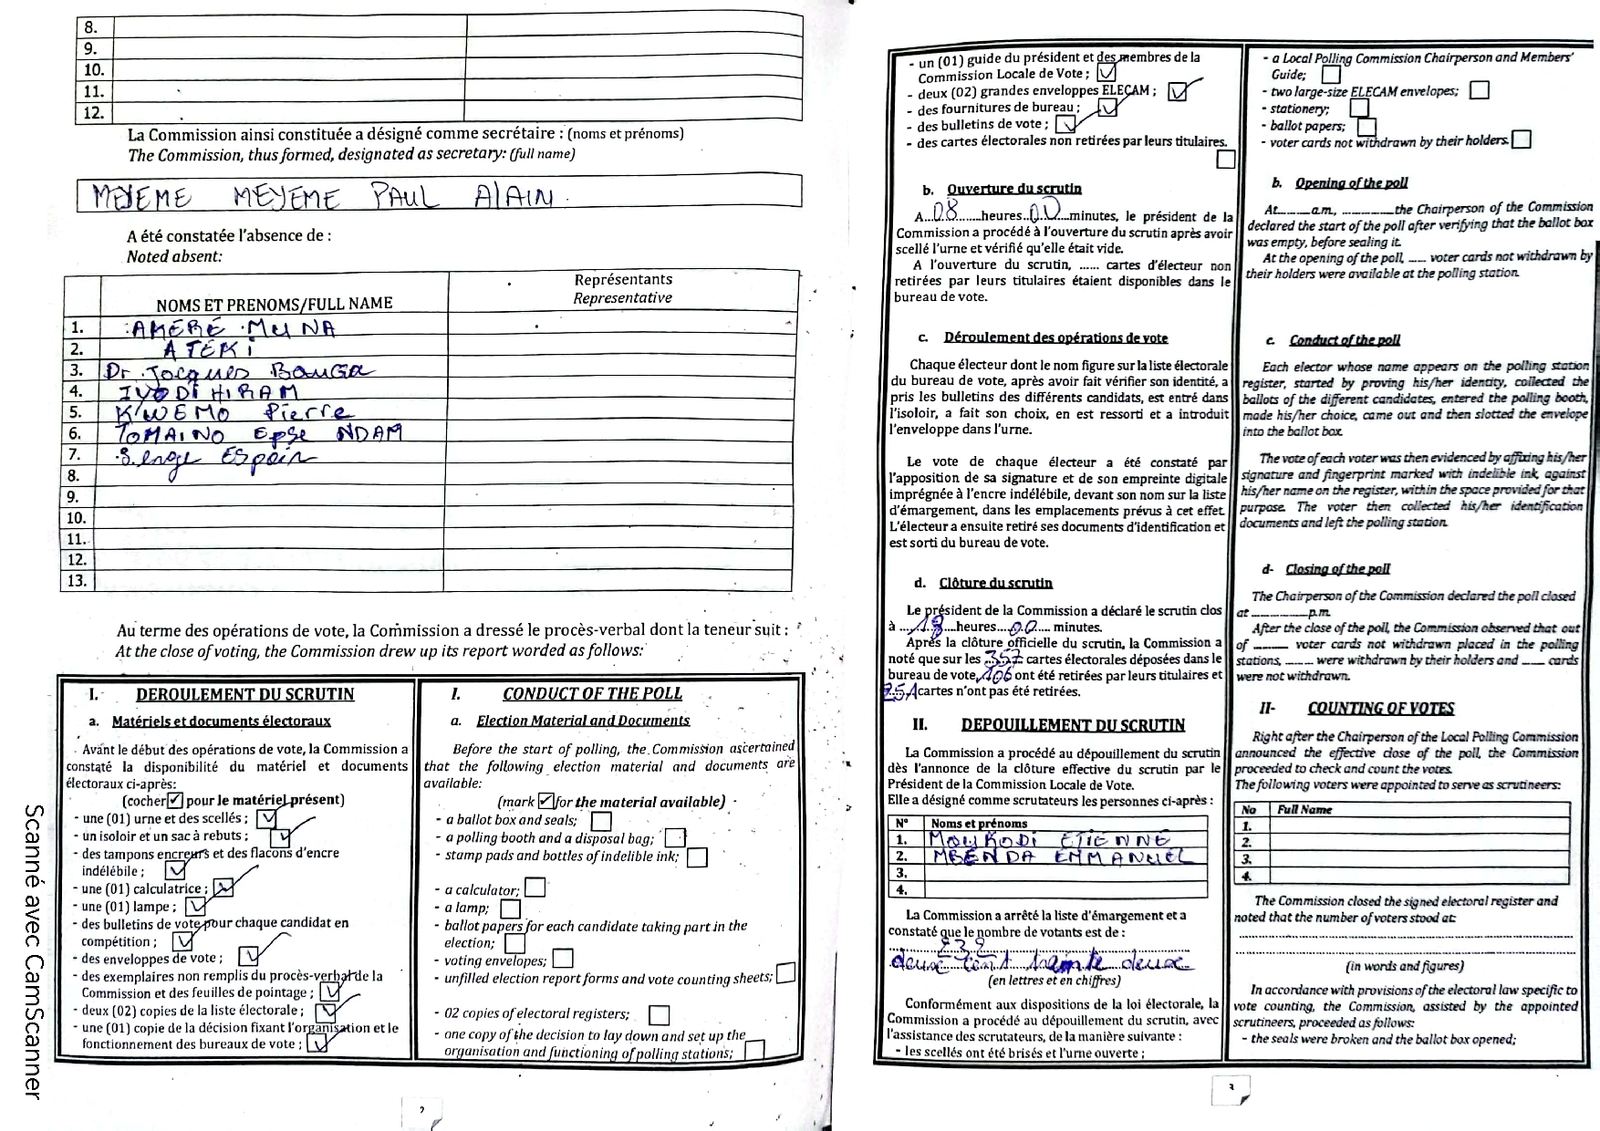 8.
9.
10.
11.
12.
La Commission ainsi constituée a désigné comme secrétaire : (noms et prénoms)
The Commission, thus formed, designated as secretary: (full name)
MEYEME MEYEME PAUL AlAIN
A été constatée l'absence de :
Noted absent:
NOMS ET PRENOMS/FULL NAME
Représentants
Representative
1. AKERE MUNA
2. ATEKI
3. Dr Jacques BOUGA
4. IYODI HIRAM
5. KWEMO Pierre
6. TOMAINO Epse NDAM
7. Serge Espoir
8.
9.
10.
11.
12.
13.
Au terme des opérations de vote, la Commission a dressé le procès-verbal dont la teneur suit :
At the close of voting, the Commission drew up its report worded as follows:
I. DEROULEMENT DU SCRUTIN
a. Matériels et documents électoraux
Avant le début des opérations de vote, la Commission a
constaté la disponibilité du matériel et documents
électoraux ci-après:
(cocher ✓ pour le matériel présent)
- une (01) urne et des scellés ; ✓
- un isoloir et un sac à rebuts ; ✓
- des tampons encreurs et des flacons d'encre
indélébile ; ✓
- une (01) calculatrice ; ✓
- une (01) lampe ; ✓
- des bulletins de vote pour chaque candidat en
compétition ; ✓
- des enveloppes de vote ; ✓
- des exemplaires non remplis du procès-verbal de la
Commission et des feuilles de pointage ; ✓
- deux (02) copies de la liste électorale ; ✓
- une (01) copie de la décision fixant l'organisation et le
fonctionnement des bureaux de vote ; ✓
I. CONDUCT OF THE POLL
a. Election Material and Documents
Before the start of polling, the Commission ascertained
that the following election material and documents are
available:
(mark ✓ for the material available)
- a ballot box and seals;
- a polling booth and a disposal bag;
- stamp pads and bottles of indelible ink;
- a calculator;
- a lamp;
- ballot papers for each candidate taking part in the
election;
- voting envelopes;
- unfilled election report forms and vote counting sheets;
- 02 copies of electoral registers;
- one copy of the decision to lay down and set up the
organisation and functioning of polling stations;
2
Scanné avec CamScanner
- un (01) guide du président et des membres de la
Commission Locale de Vote ; ✓
- deux (02) grandes enveloppes ELECAM ; ✓
- des fournitures de bureau ; ✓
- des bulletins de vote ; ✓
- des cartes électorales non retirées par leurs titulaires.
b. Ouverture du scrutin
A...08......heures..00...minutes, le président de la
Commission a procédé à l'ouverture du scrutin après avoir
scellé l'urne et vérifié qu'elle était vide.
A l'ouverture du scrutin, ...... cartes d'électeur non
retirées par leurs titulaires étaient disponibles dans le
bureau de vote.
c. Déroulement des opérations de vote
Chaque électeur dont le nom figure sur la liste électorale
du bureau de vote, après avoir fait vérifier son identité, a
pris les bulletins des différents candidats, est entré dans
l'isoloir, a fait son choix, en est ressorti et a introduit
l'enveloppe dans l'urne.
Le vote de chaque électeur a été constaté par
l'apposition de sa signature et de son empreinte digitale
imprégnée à l'encre indélébile, devant son nom sur la liste
d'émargement, dans les emplacements prévus à cet effet.
L'électeur a ensuite retiré ses documents d'identification et
est sorti du bureau de vote.
d. Clôture du scrutin
Le président de la Commission a déclaré le scrutin clos
à ...18...heures...00.... minutes.
Après la clôture officielle du scrutin, la Commission a
noté que sur les .357 cartes électorales déposées dans le
bureau de vote, 106 ont été retirées par leurs titulaires et
251 cartes n'ont pas été retirées.
II. DEPOUILLEMENT DU SCRUTIN
La Commission a procédé au dépouillement du scrutin
dès l'annonce de la clôture effective du scrutin par le
Président de la Commission Locale de Vote.
Elle a désigné comme scrutateurs les personnes ci-après :
N° Noms et prénoms
1. MOUKODI ETIENNE
2. MBENDA EMMANUEL
3.
4.
La Commission a arrêté la liste d'émargement et a
constaté que le nombre de votants est de :
232
deux cent trente deux
(en lettres et en chiffres)
Conformément aux dispositions de la loi électorale, la
Commission a procédé au dépouillement du scrutin, avec
l'assistance des scrutateurs, de la manière suivante :
- les scellés ont été brisés et l'urne ouverte ;
- a Local Polling Commission Chairperson and Members'
Guide;
- two large-size ELECAM envelopes;
- stationery;
- ballot papers;
- voter cards not withdrawn by their holders.
b. Opening of the poll
At.........a.m, ..............the Chairperson of the Commission
declared the start of the poll after verifying that the ballot box
was empty, before sealing it.
At the opening of the poll, ..... voter cards not withdrawn by
their holders were available at the polling station.
c. Conduct of the poll
Each elector whose name appears on the polling station
register, started by proving his/her identity, collected the
ballots of the different candidates, entered the polling booth,
made his/her choice, came out and then slotted the envelope
into the ballot box.
The vote of each voter was then evidenced by affixing his/her
signature and fingerprint marked with indelible ink, against
his/her name on the register, within the space provided for that
purpose. The voter then collected his/her identification
documents and left the polling station.
d- Closing of the poll
The Chairperson of the Commission declared the poll closed
at ...............p.m.
After the close of the poll, the Commission observed that out
of ......... voter cards not withdrawn placed in the polling
stations, ....... were withdrawn by their holders and ...... cards
were not withdrawn.
II- COUNTING OF VOTES
Right after the Chairperson of the Local Polling Commission
announced the effective close of the poll, the Commission
proceeded to check and count the votes.
The following voters were appointed to serve as scrutineers:
No Full Name
1.
2.
3.
4.
The Commission closed the signed electoral register and
noted that the number of voters stood at:
(in words and figures)
In accordance with provisions of the electoral law specific to
vote counting, the Commission, assisted by the appointed
scrutineers, proceeded as follows:
- the seals were broken and the ballot box opened;
3